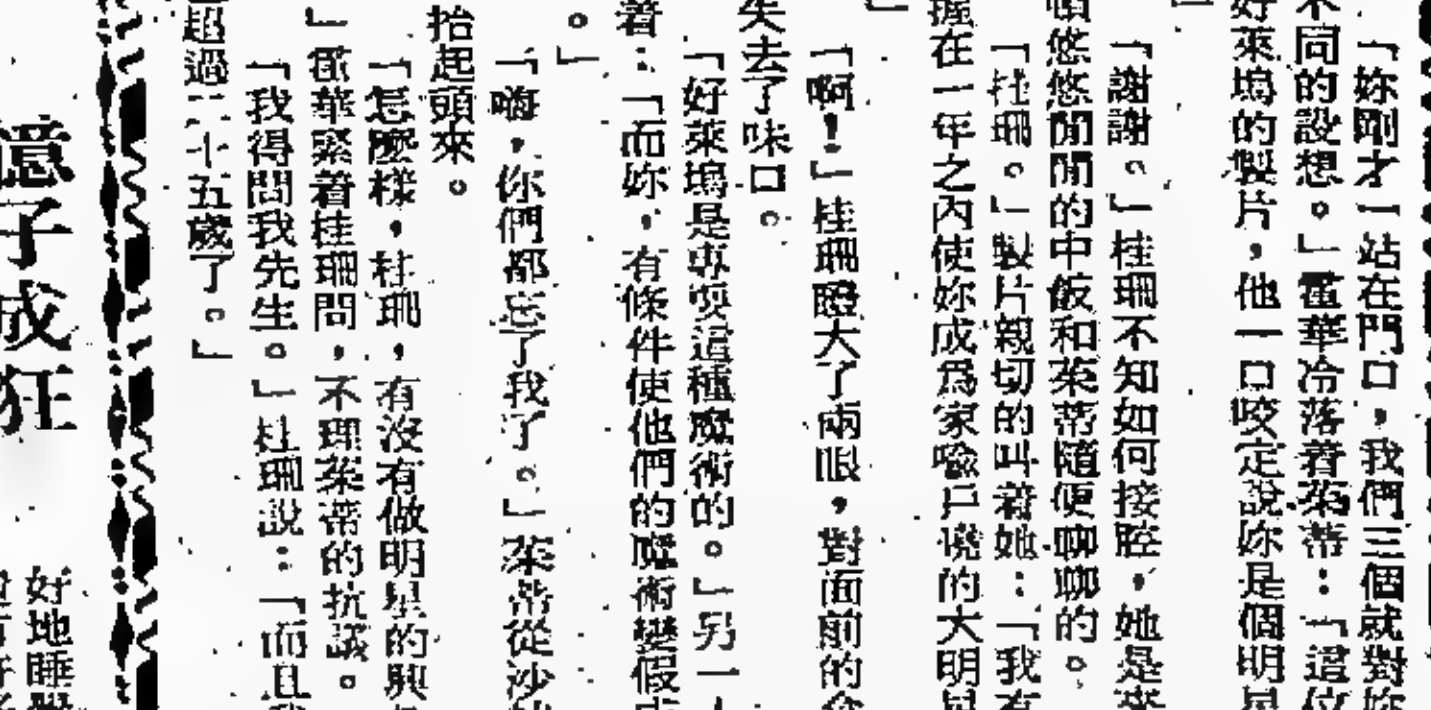 「妳剛才一站在門口，我們三個就對妳
不同的設想。」雷華冷落着茱蒂：「這位
好萊塢的製片，他一口咬定說妳是個明星
「謝謝。」桂珊不知如何接腔，她是來
頓悠悠閒閒的中飯和茱蒂隨便聊聊的。
「桂珊。」製片親切的叫着她：「我有
握在一年之內使妳成爲家喩戶曉的大明星
「啊！」桂珊瞪大了兩眼，對面前的
失去了味口。
「好萊塢是專耍這種魔術的。」另一人
着：「而妳，有條件使他們的魔術變假
。」
「嗨，你們都忘了我了。」茱蒂從沙
抬起頭來。
「怎麼樣，桂珊，有沒有做明星的興
」雷華緊着桂珊問，不理茱蒂的抗議。
「我得問我先生。」桂珊說：「而且我
超過二十五歲了。」
億子成狂
好地睡覺